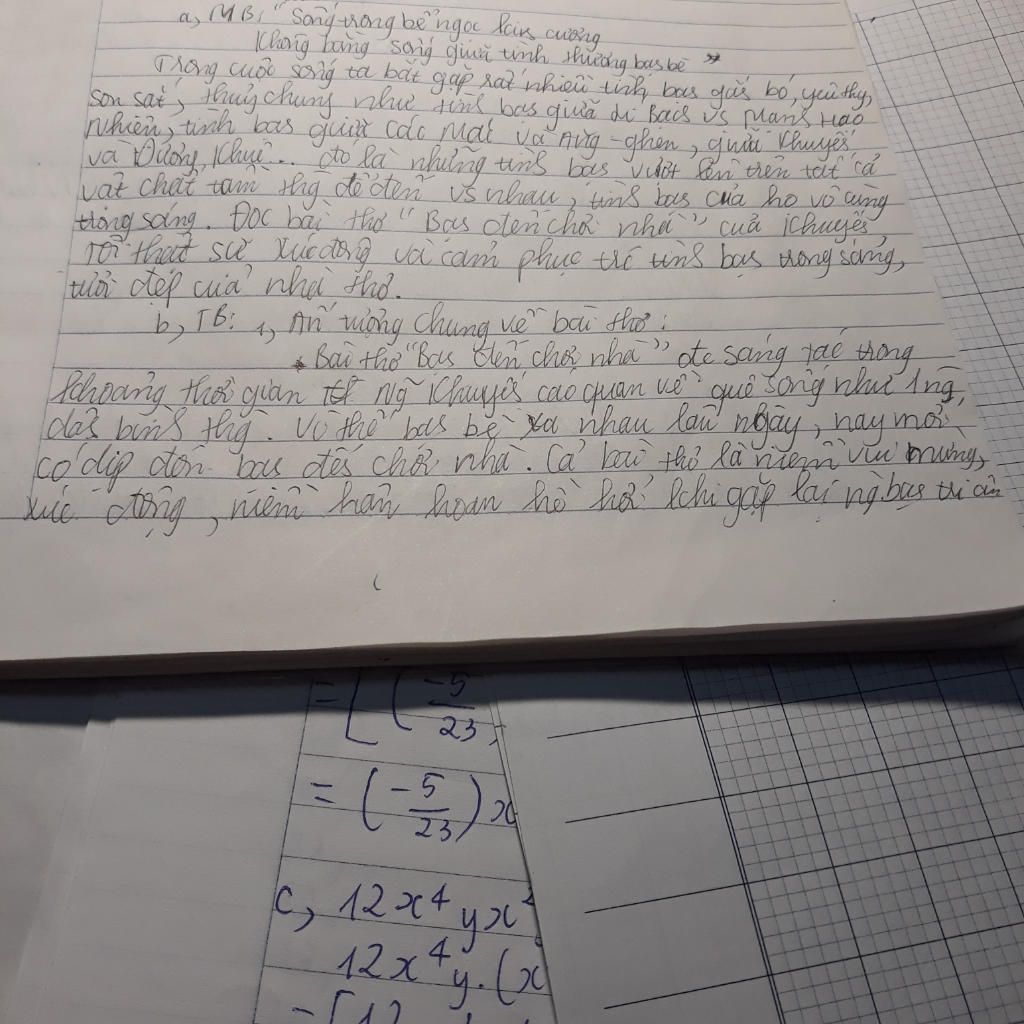 a, MB: "Sống trong bể ngọc kim cương
Không bằng sống giữa tình thương bạn bè"
Trong cuộc sống ta bắt gặp rất nhiều tình bạn gắn bó, yêu thg,
son sắt, thuỷ chung như tình bạn giữa Lí Bạch vs Mạnh Hạo
Nhiên, tình bạn giữa Các Mác và Ăng-ghen, giữa Khuyến
và Dương Khuê... đó là những tình bạn vượt lên trên tất cả
vật chất tầm thg để đến vs nhau, tình bạn của họ vô cùng
trong sáng. Đọc bài thơ "Bạn đến chơi nhà" của Khuyến,
tôi thật sự xúc động và cảm phục trc tình bạn trong sáng,
tươi đẹp của nhà thơ.
b, TB: 1, Ấn tượng chung về bài thơ:
* Bài thơ "Bạn đến chơi nhà" đc sáng tác trong
khoảng thời gian Ng Khuyến cáo quan về quê sống như 1 ng
dân bình thg. Vì thế bạn bè xa nhau lâu ngày, nay mới
có dịp đón bạn đến chơi nhà. Cả bài thơ là niềm vui mừng,
xúc động, niềm hân hoan hồ hởi khi gặp lại ng bạn tri âm
= [(-5/23)
= (-5/23) x
c, 12x⁴yx²
12x⁴y.(x
= [12